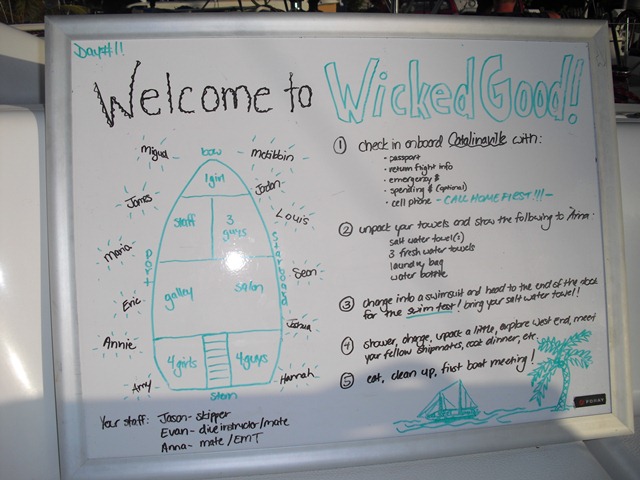 Day #1!
Welcome to Wicked Good!
Miguel
bow
McGibbin
James
1 girl
Jordan
staff
3 guys
Louis
Maria
port
starboard
Sean
Eric
galley
salon
Joshua
Annie
4 girls
4 guys
Amy
Hannah
stern
Your staff: Jason - skipper
Evan - dive instructor/mate
Anna - mate/EMT
① check in onboard Catalinaville with:
· passport
· return flight info
· emergency $
· spending $ (optional)
· cell phone - CALL HOME FIRST!!! -
② unpack your towels and show the following to Anna:
salt water towel(s)
3 fresh water towels
laundry bag
water bottle
③ change into a swimsuit and head to the end of the dock
for the swim test! bring your salt water towel!
④ shower, change, unpack a little, explore west end, meet
your fellow shipmates, cook dinner, etc.
⑤ eat, clean up, first boat meeting!